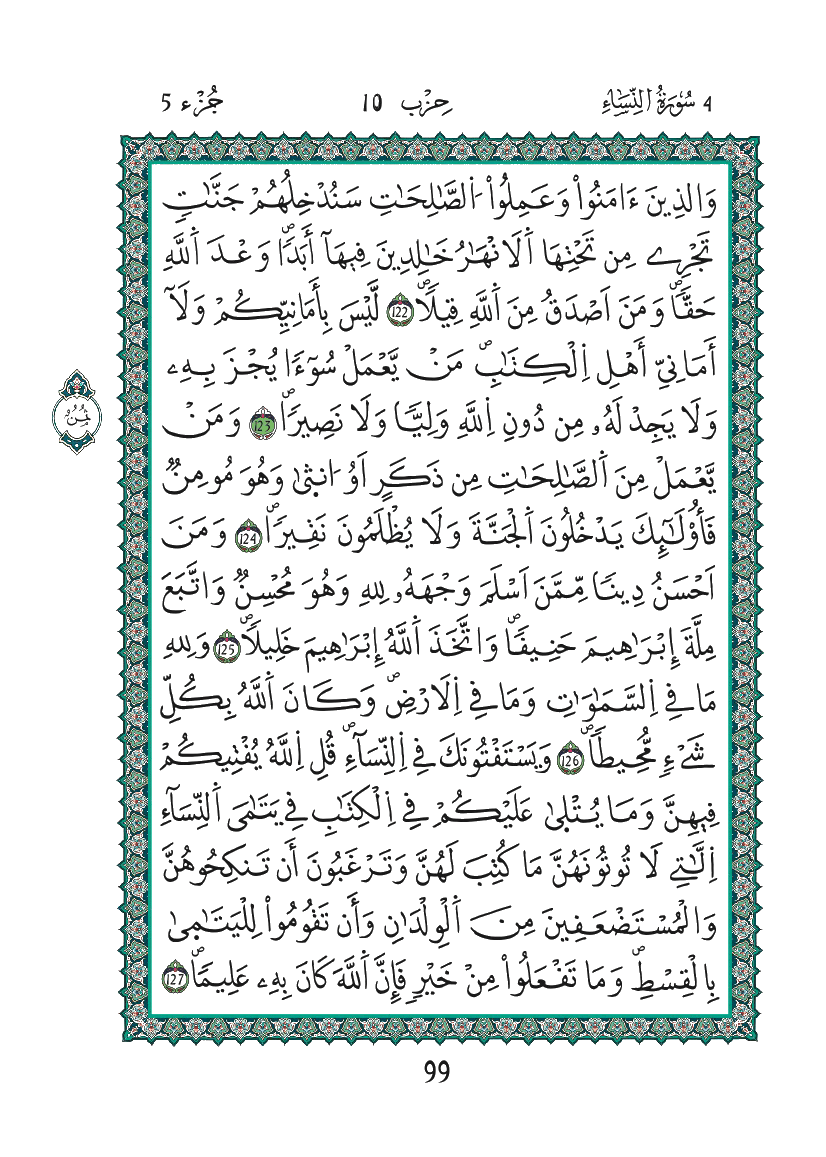 4 سُورَةُ النِّسَاءِ
حِزْب 10
جُزْء 5
وَالذِينَ ءَامَنُواْ وَعَمِلُواْ اَ۬لصَّٰلِحَٰتِ سَنُدْخِلُهُمْ جَنَّٰتٖ
تَجْرِے مِن تَحْتِهَا اَ۬لَانْهَٰرُ خَٰلِدِينَ فِيهَآ أَبَداٗۖ وَعْدَ اَ۬للَّهِ
حَقّاٗۖ وَمَنَ اَصْدَقُ مِنَ اَ۬للَّهِ قِيلاٗۖ 122 لَّيْسَ بِأَمَانِيِّكُمْ وَلَآ
أَمَانِيِّ أَهْلِ اِ۬لْكِتَٰبِۖ مَنْ يَّعْمَلْ سُوٓءاٗ يُجْزَ بِهِۦ
وَلَا يَجِدْ لَهُۥ مِن دُونِ اِ۬للَّهِ وَلِيّاٗ وَلَا نَصِيراٗۖ 123 وَمَنْ
يَّعْمَلْ مِنَ اَ۬لصَّٰلِحَٰتِ مِن ذَكَرٍ اَوُ ا۟نث۪ىٰ وَهُوَ مُومِنٞ
فَأُوْلَٰٓئِكَ يَدْخُلُونَ اَ۬لْجَنَّةَ وَلَا يُظْلَمُونَ نَقِيراٗۖ 124 وَمَنَ
اَحْسَنُ دِيناٗ مِّمَّنَ اَسْلَمَ وَجْهَهُۥ لِلهِ وَهُوَ مُحْسِنٞ وَاتَّبَعَ
مِلَّةَ إِبْرَٰهِيمَ حَنِيفاٗۖ وَاتَّخَذَ اَ۬للَّهُ إِبْرَٰهِيمَ خَلِيلاٗۖ 125 وَلِلهِ
مَا فِے اِ۬لسَّمَٰوَٰتِ وَمَا فِے اِ۬لَارْضِۖ وَكَانَ اَ۬للَّهُ بِكُلِّ
شَےْءٖ مُّحِيطاٗۖ 126 وَيَسْتَفْتُونَكَ فِے اِ۬لنِّسَآءِۖ قُلِ اِ۬للَّهُ يُفْتِيكُمْ
فِيهِنَّ وَمَا يُتْل۪ىٰ عَلَيْكُمْ فِے اِ۬لْكِتَٰبِ فِے يَتَٰمَى اَ۬لنِّسَآءِ
اِ۬لَّٰتِے لَا تُوتُونَهُنَّ مَا كُتِبَ لَهُنَّ وَتَرْغَبُونَ أَن تَنكِحُوهُنَّ
وَالْمُسْتَضْعَفِينَ مِنَ اَ۬لْوِلْدَٰنِ وَأَن تَقُومُواْ لِلْيَتَٰم۪ىٰ
بِالْقِسْطِۖ وَمَا تَفْعَلُواْ مِنْ خَيْرٖ فَإِنَّ اَ۬للَّهَ كَانَ بِهِۦ عَلِيماٗۖ 127
ثُمُن
99